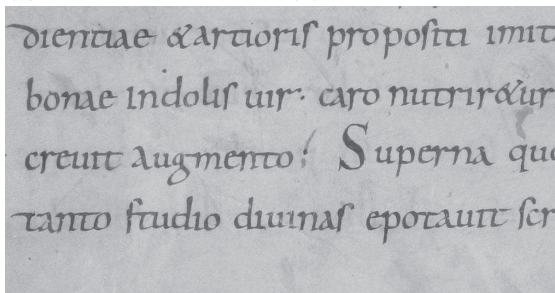 dientiae &artioris propositi imit
bonae indolis uir· caro nutrir&ur
creuit augmento; Superna que
tanto studio diuinas epotauit scr